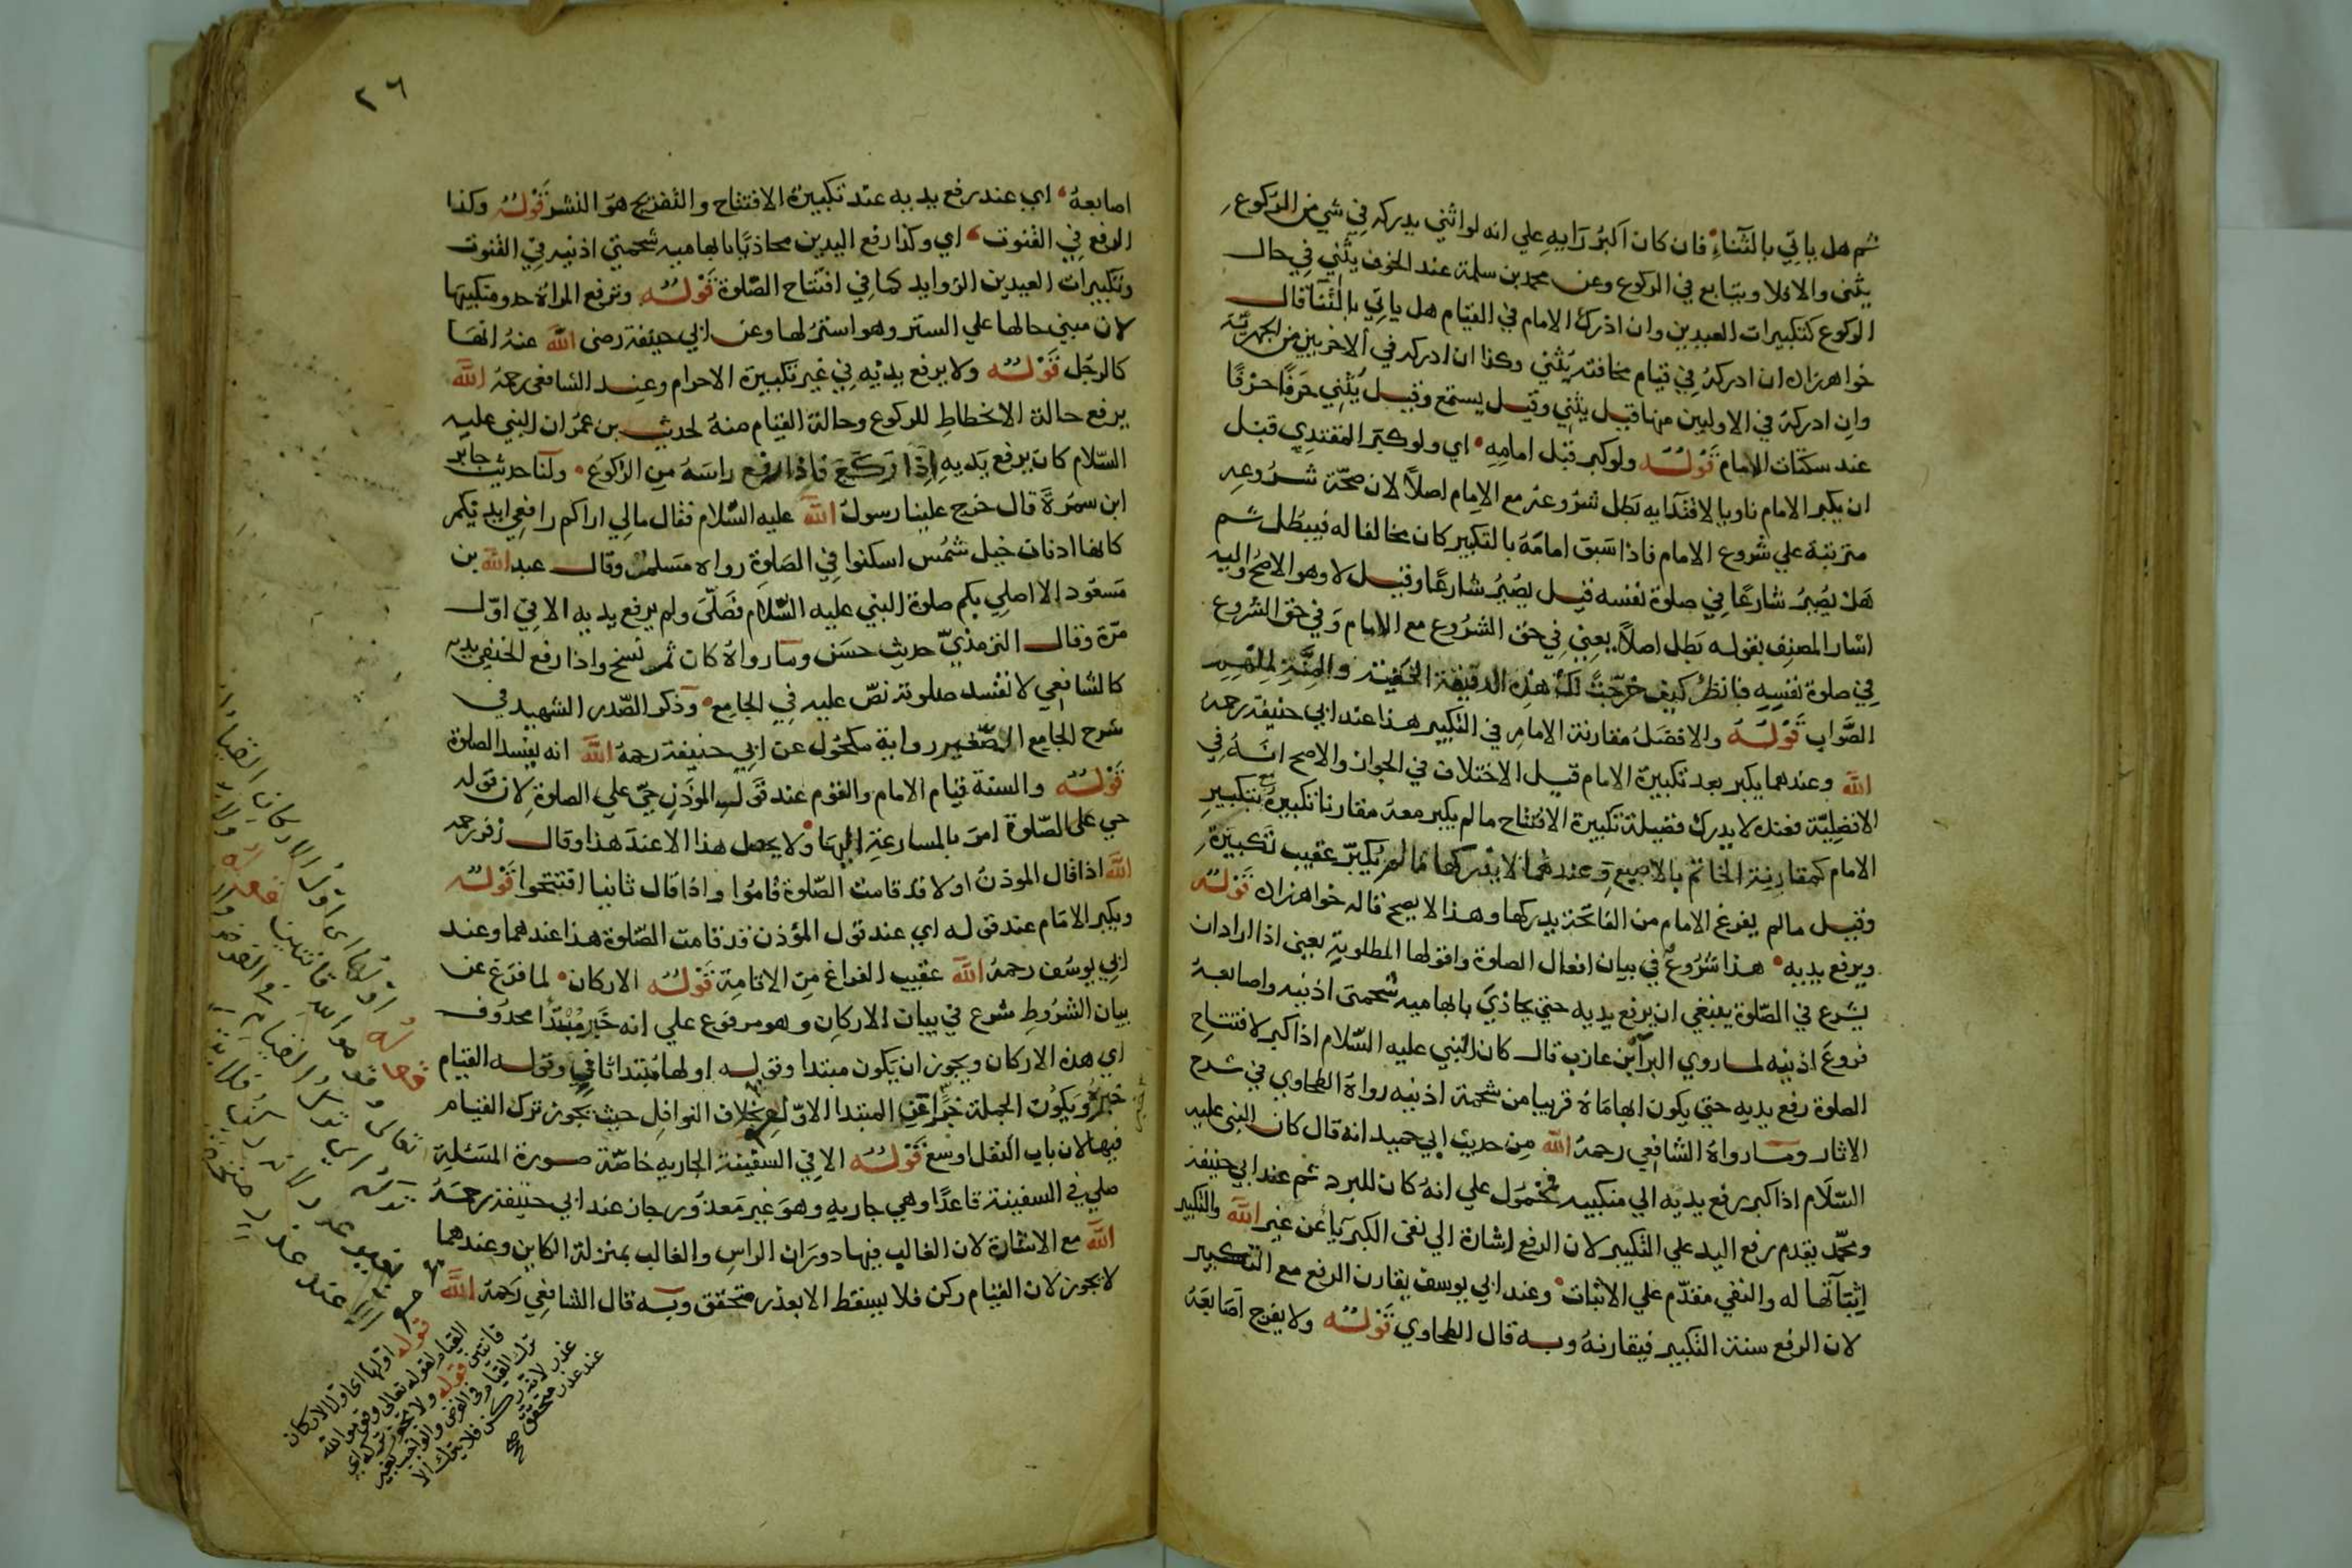 ثم هل ياتي بالثناء فان كان اكبر رايه علي انه لو اثني يدركه في شي من الركوع
يثني والا فلا ويتابع في الركوع وعن محمد بن سلمة عند الخوف يثني في حال
الركوع كتكبيرات العيدين وان ادرك الامام في القيام هل ياتي بالثنا قال
خواهرزاده ان ادركه في قيام مخافته يثني وكذا ان ادركه في الاخريين من الجهرية
وان ادركه في الاوليين منها قيل يثني وقيل يستمع وقيل يثني حرفا حرفا
عند سكتات الامام قوله ولو كبر قبل امامه اي ولو كبر المقتدي قبل
ان يكبر الامام ناويا لاقتدايه بطل شروعه مع الامام اصلا لان صحة شروعه
مترتبة علي شروع الامام فاذا سبق امامه بالتكبير كان مخالفا له فيبطل ثم
هل يصير شارعا في صلوة نفسه قيل يصير شارعا وقيل لا وهو الاصح واليه
اشار المصنف بقوله بطل اصلا يعني في حق الشروع مع الامام وفي حق الشروع
في صلوة نفسه فانظر كيف خرجت لك هذه الدقيقة الخفية والمنة لملهم
الصواب قوله والافضل مقارنة الامام في التكبير هذا عند ابي حنيفة رحمه
الله وعندهما يكبر بعد تكبيرة الامام قيل الاختلاف في الجواز والاصح انه في
الافضلية فعنده لا يدرك فضيلة تكبيرة الافتتاح ما لم يكبر معه مقارنا تكبيره بتكبير
الامام كمقارنة الخاتم بالاصبع وعندهما لا يدركها ما لم يكبر عقيب تكبيره
وقيل ما لم يفرغ الامام من الفاتحة يدركها وهذا لا يصح قاله خواهرزاده قوله
ويرفع يديه هذا شروع في بيان افعال الصلوة واقوالها المطلوبة يعني اذا اراد ان
يشرع في الصلوة ينبغي ان يرفع يديه حتي يحاذي بابهاميه شحمتي اذنيه واصابعه
فروع اذنيه لما روي البرآ بن عازب قال كان النبي عليه السلام اذا كبر لافتتاح
الصلوة رفع يديه حتي يكون ابهاماه قريبا من شحمة اذنيه رواه الطحاوي في شرح
الاثار وما رواه الشافعي رحمه الله من حديث ابي حميد انه قال كان النبي عليه
السلام اذا كبر رفع يديه الي منكبيه فمحمول علي انه كان للبرد ثم عند ابي حنيفة
ومحمد يقدم رفع اليد علي التكبير لان الرفع اشارة الي نفي الكبريا عن غير الله والتكبير
اثباتها له والنفي مقدم علي الاثبات وعند ابي يوسف يقارن الرفع مع التكبير
لان الرفع سنة التكبير فيقارنه وبه قال الطحاوي قوله ولا يفرج اصابعه
٢٦
اصابعه اي عند رفع يديه عند تكبيرة الافتتاح والتفريج هو النشر قوله وكذا
الرفع في القنوت اي وكذا رفع اليدين محاذيا بابهاميه شحمتي اذنيه في القنوت
وتكبيرات العيدين الزوايد كما في افتتاح الصلوة قوله وترفع المراة حدو منكبيها
لان مبني حالها علي الستر وهو استر لها وعن ابي حنيفة رضى الله عنه انها
كالرجل قوله ولا يرفع يديه في غير تكبيرة الاحرام وعند الشافعي رحمه الله
يرفع حالة الانحطاط للركوع وحالة القيام منه لحديث بن عمر ان النبي عليه
السلام كان يرفع يديه اذا ركع فاذا رفع راسه من الركوع ولنا حديث جابر
ابن سمرة قال خرج علينا رسول الله عليه السلام فقال مالي اراكم رافعي ايديكم
كانها اذناب خيل شمس اسكنوا في الصلوة رواه مسلم وقال عبد الله بن
مسعود الا اصلي بكم صلوة النبي عليه السلام فصلى ولم يرفع يديه الا في اول
مرة وقال الترمذي حديث حسن وما رواه كان ثم نسخ واذا رفع الحنفي يديه
كالشافعي لا تفسد صلوته نص عليه في الجامع وذكر الصدر الشهيد في
شرح الجامع الصغير رواية مكحول عن ابي حنيفة رحمه الله انه يفسد الصلوة
قوله والسنة قيام الامام والقوم عند قول الموذن حي علي الصلوة لان قوله
حي على الصلوة امر بالمسارعة اليها ولا يحصل هذا الا عند هذا وقال زفر رحمه
الله اذا قال الموذن اولا قد قامت الصلوة قاموا واذا قال ثانيا افتتحوا قوله
ويكبر الامام عند قوله اي عند قول المؤذن قد قامت الصلوة هذا عندهما وعند
ابي يوسف رحمه الله عقيب الفراغ من الاقامة قوله الاركان لما فرغ عن
بيان الشروط شرع في بيان الاركان وهو مرفوع علي انه خبر مبتدا محدوف
اي هذه الاركان ويجوز ان يكون مبتدا وقوله اولها مبتدا ثاني وقوله القيام
خبره ويكون الجملة خبرا عن المبتدا الاول بخلاف النوافل حيث يجوز ترك القيام
فيها لان باب النفل اوسع قوله الا في السفينة الجاريه خاصة صورة المسئلة
صلي في السفينة قاعدا وهي جاريه وهو غير معذور جاز عند ابي حنيفة رحمه
الله مع الاشارة لان الغالب فيها دوران الراس والغالب بمنزلة الكاين وعندهما
لا يجوز لان القيام ركن فلا يسقط الا بعذر متحقق وبه قال الشافعي رحمه الله
قوله اولها اى اول الاركان
القيام لقوله تعالى وقوموا لله
قانتين قوله ولا يجوز تركه اي
ترك القيام في الفرض والواجب بغير
عذر لانه ركن فلا يترك الا
عند عذر متحقق صح